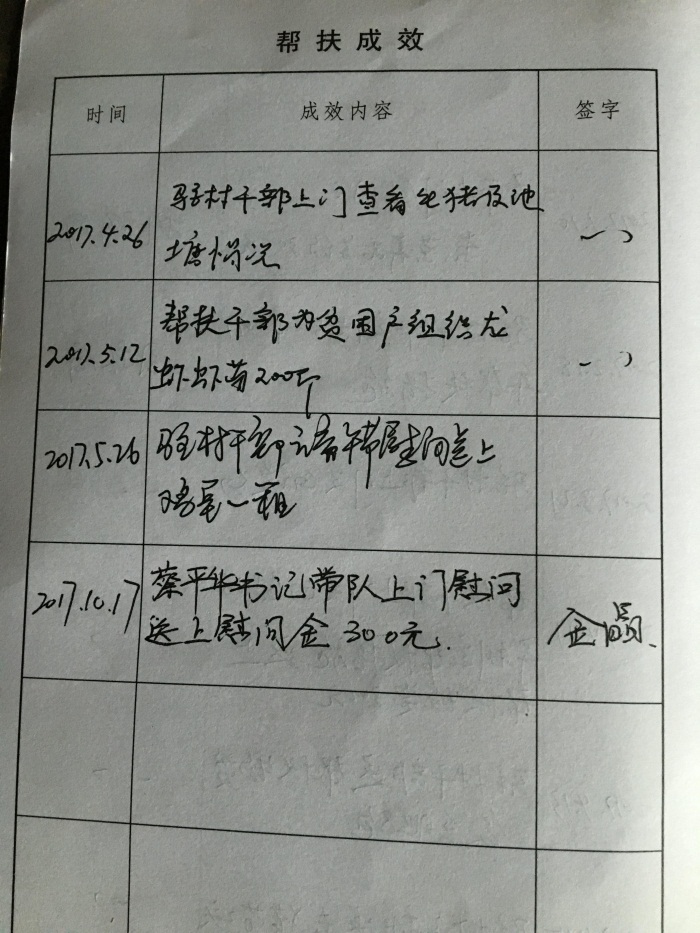 帮扶成效
时间 成效内容 签字
2017.4.26
驻村干部上门查看 猪及池
塘情况
2017.5.12
帮扶干部为贫困户组织龙
虾虾苗200斤
2017.5.26
驻村干部端午节慰问送上
一箱
2017.10.17
蔡平华书记带队上门慰问
送上慰问金300元.
金